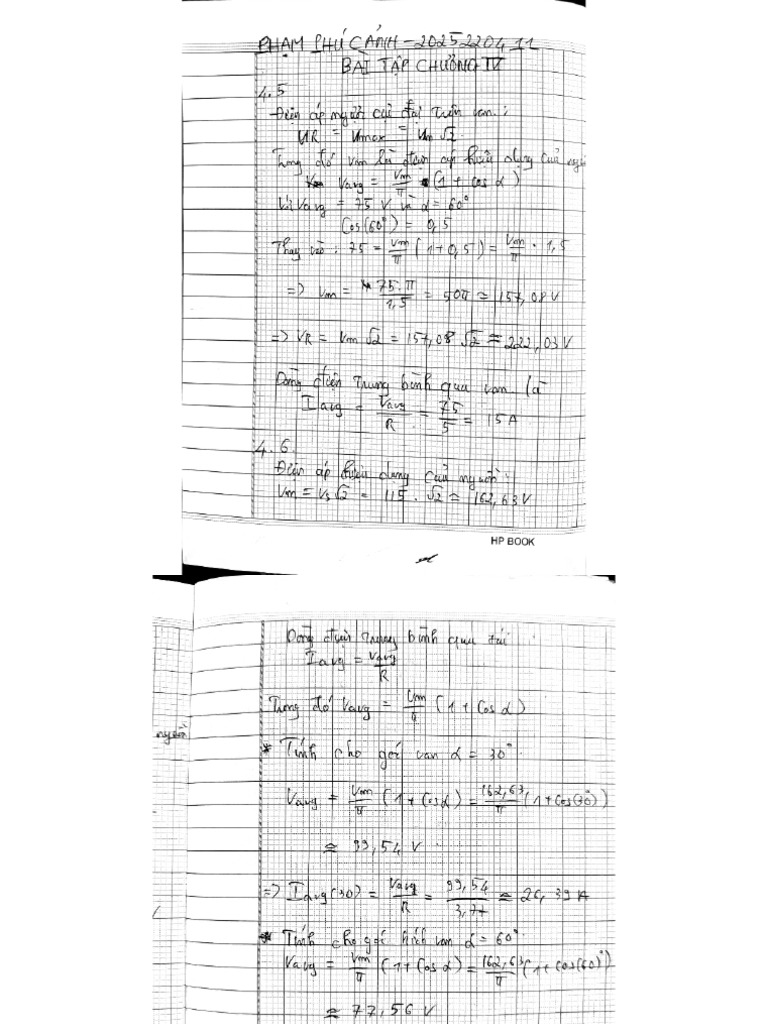 PHẠM PHÚ CẢNH - 2025220411
BÀI TẬP CHƯƠNG IV
4.5
Điện áp ngược cực đại trên van:
UR = Vmax = Vm √2
Trong đó Vm là điện áp hiệu dụng của nguồn
Vavg = Vm/π (1 + cos α)
Với Vavg = 75 V và α = 60°
Cos(60°) = 0,5
Thay vào: 75 = Vm/π (1+0,5) = Vm/π . 1,5
=> Vm = 75.π/1,5 = 50π ≈ 157,08 V
=> VR = Vm √2 = 157,08 √2 ≈ 222,03 V
Dòng điện trung bình qua van là
Iavg = Vavg/R = 75/5 = 15A
4.6.
Điện áp hiệu dụng của nguồn:
Vm = Vs √2 = 115 . √2 ≈ 162,63 V
HP BOOK
Dòng điện trung bình qua tải:
Iavg = Vavg/R
nguồn
Trong đó Vavg = Vm/π (1 + Cos α)
* Tính cho góc van α = 30°
Vavg = Vm/π (1 + Cos α) = 162,63/π (1 + Cos(30°))
≈ 99,54 V
=> Iavg(30) = Vavg/R = 99,54/3,77 ≈ 26,39 A
* Tính cho góc kích van α = 60°
Vavg = Vm/π (1 + Cos α) = 162,63/π (1 + Cos(60°))
≈ 77,56 V